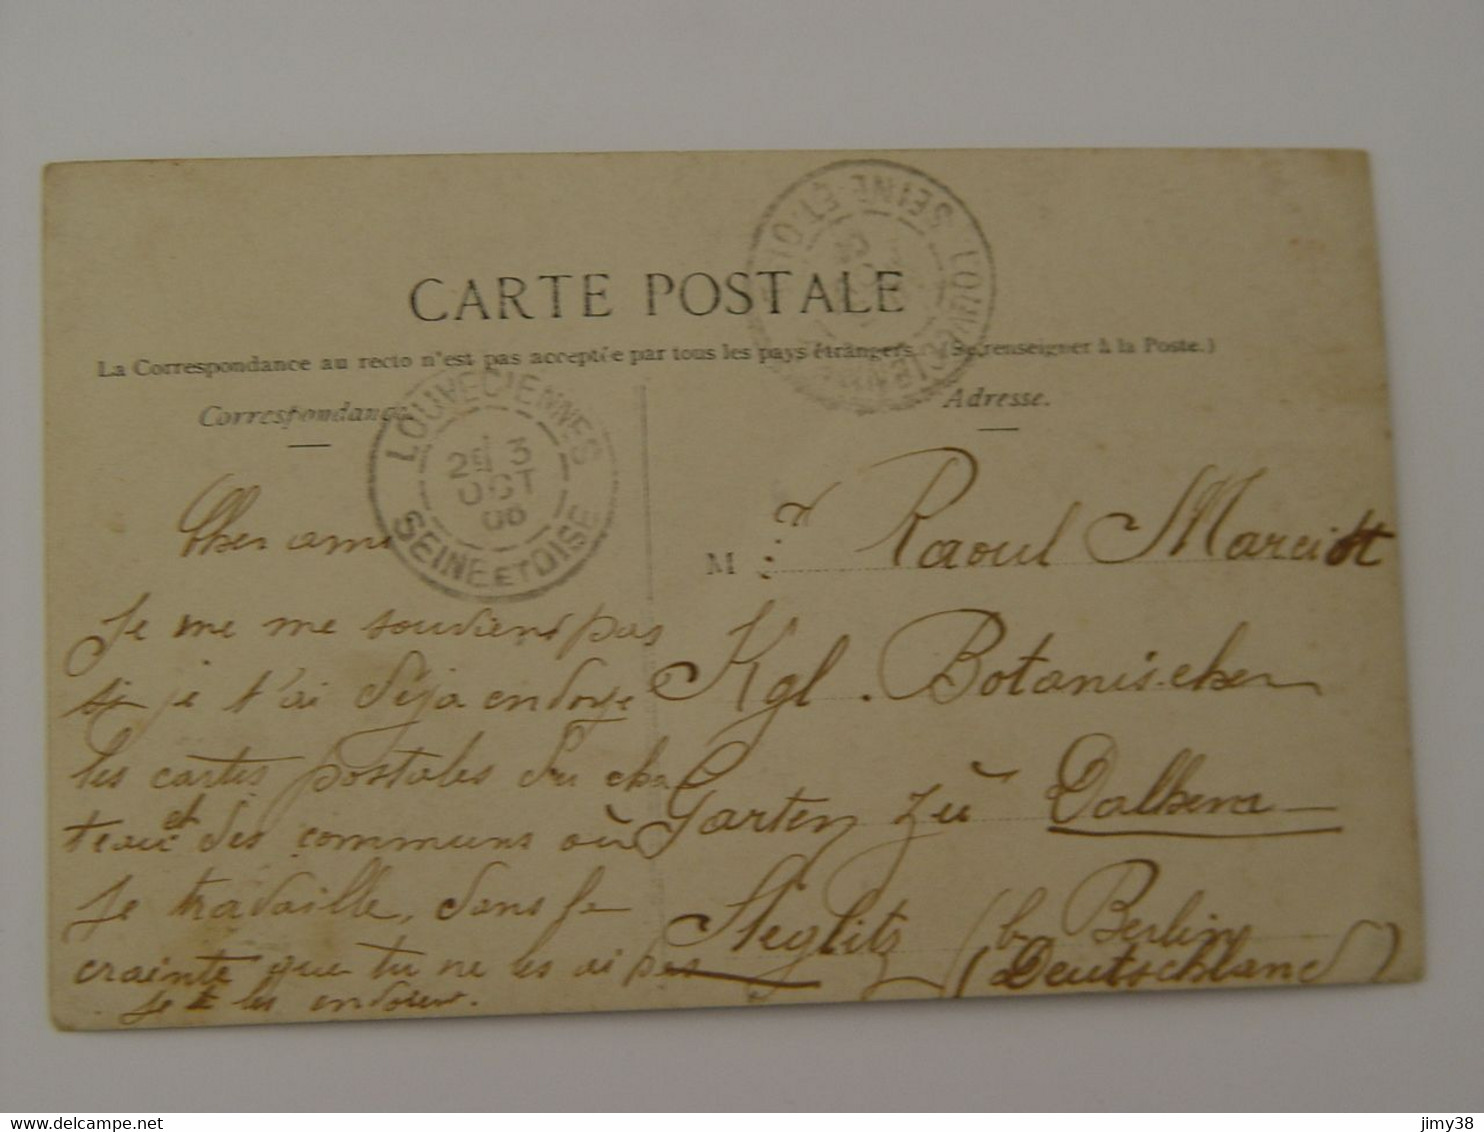 CARTE POSTALE
La Correspondance au recto n'est pas acceptée par tous les pays étrangers. (Se renseigner à la Poste.)
Correspondance
Adresse.
LOUVECIENNES
3
OCT
06
SEINE ET OISE
LOUVECIENNES
SEINE-ET-OISE
Cher ami
Je me me souviens pas
si je t'ai déja envoyé
les cartes postales du cha
teau et des communs où
je travaille, dans la
crainte que tu ne les ai pas
je te les envoie.
M r Raoul
Kgl. Botanischen
Garten zu Dalhem
Steglitz (b Berlin
(Deutschland)
delcampe.net
jimy38